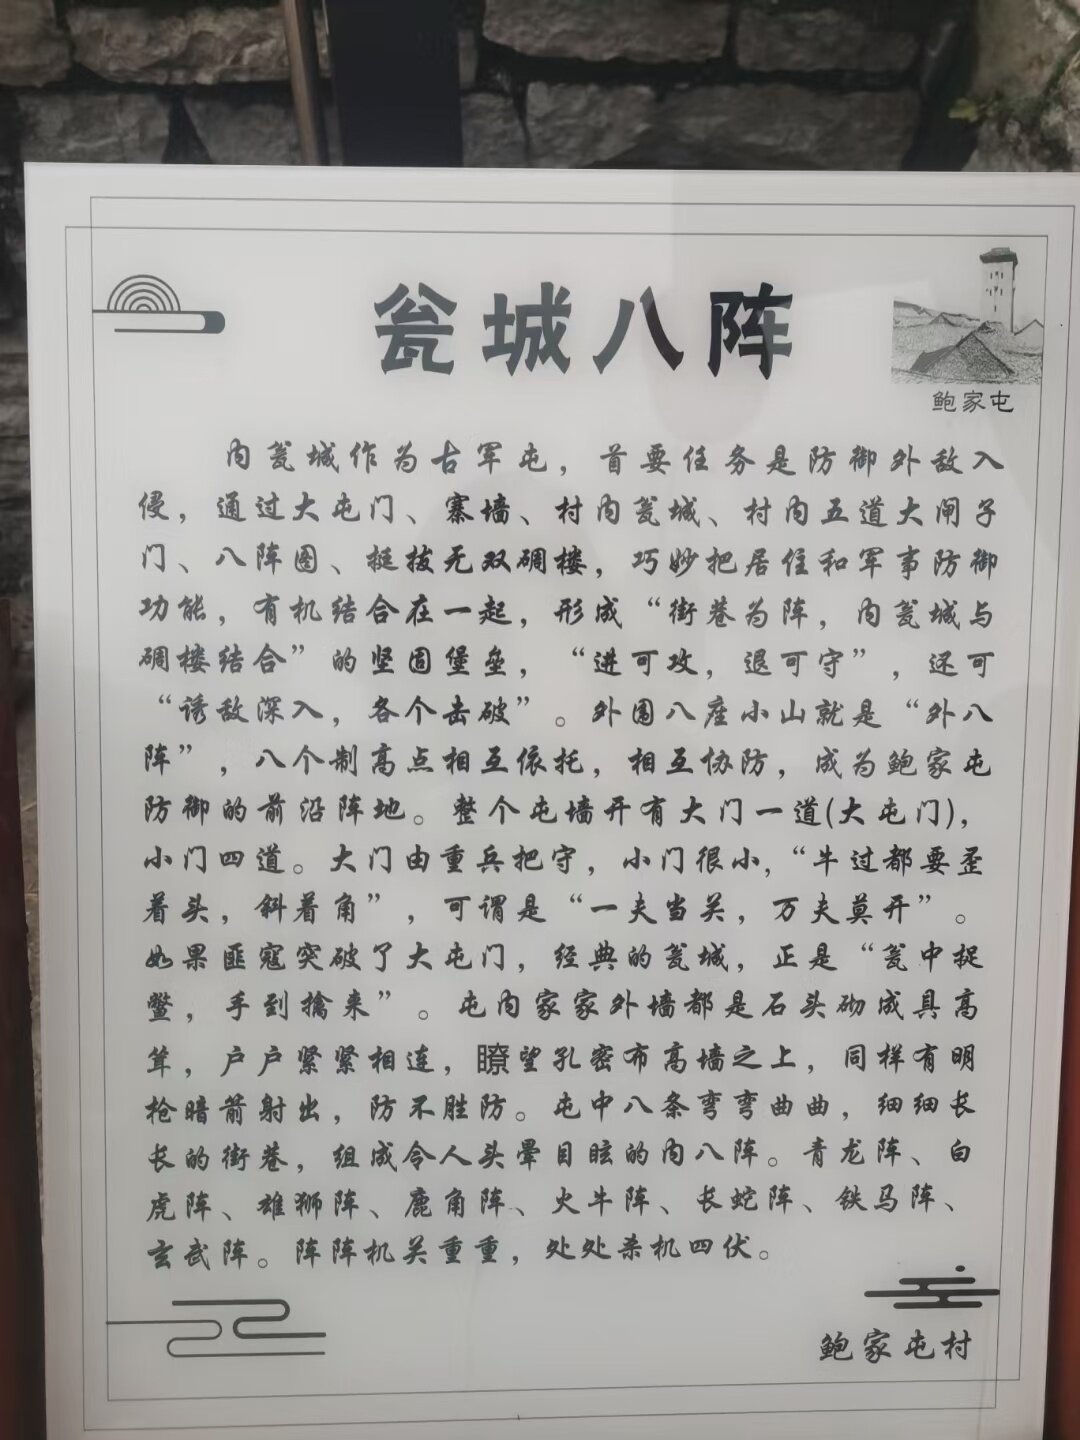 瓮城八阵
鲍家屯
内瓮城作为古军屯，首要任务是防御外敌入
侵，通过大屯门、寨墙、村内瓮城、村内五道大闸子
门、八阵图、挺拔无双碉楼，巧妙把居住和军事防御
功能，有机结合在一起，形成“街巷为阵，内瓮城与
碉楼结合”的坚固堡垒，“进可攻，退可守”，还可
“诱敌深入，各个击破”。外围八座小山就是“外八
阵”，八个制高点相互依托，相互协防，成为鲍家屯
防御的前沿阵地。整个屯墙开有大门一道(大屯门)，
小门四道。大门由重兵把守，小门很小,“牛过都要歪
着头，斜着角”，可谓是“一夫当关，万夫莫开”。
如果匪寇突破了大屯门，经典的瓮城，正是“瓮中捉
鳖，手到擒来”。屯内家家外墙都是石头砌成具高
耸，户户紧紧相连，瞭望孔密布高墙之上，同样有明
枪暗箭射出，防不胜防。屯中八条弯弯曲曲，细细长
长的街巷，组成令人头晕目眩的内八阵。青龙阵、白
虎阵、雄狮阵、鹿角阵、火牛阵、长蛇阵、铁马阵、
玄武阵。阵阵机关重重，处处杀机四伏。
鲍家屯村